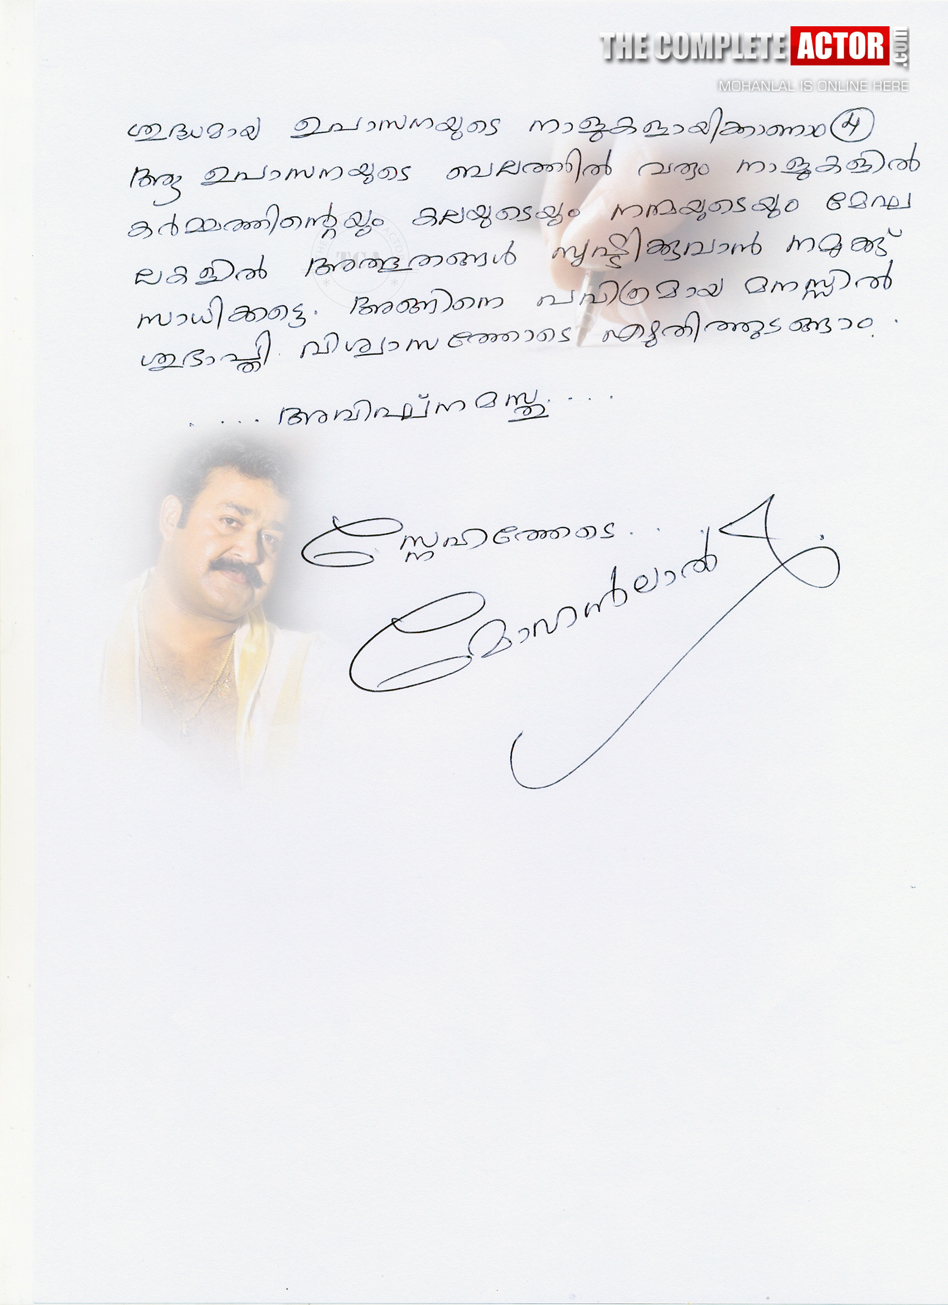 THE COMPLETE ACTOR .com
MOHANLAL IS ONLINE HERE
ശുദ്ധമായ ഉപാസനയുടെ നാളുകളായിക്കാണാം 4
ആ ഉപാസനയുടെ ബലത്തിൽ വരും നാളുകളിൽ
കർമ്മത്തിന്റെയും കലയുടെയും നന്മയുടെയും മേഘ
ലകളിൽ അത്ഭുതങ്ങൾ സൃഷ്ടിക്കുവാൻ നമുക്ക്
സാധിക്കട്ടെ. അങ്ങിനെ പവിത്രമായ മനസ്സിൽ
ശുഭാപ്തി വിശ്വാസത്തോടെ എഴുതിത്തുടങ്ങാം.
.... അവിഘ്നമസ്തു....
സ്നേഹത്തോടെ...
മോഹൻലാൽ